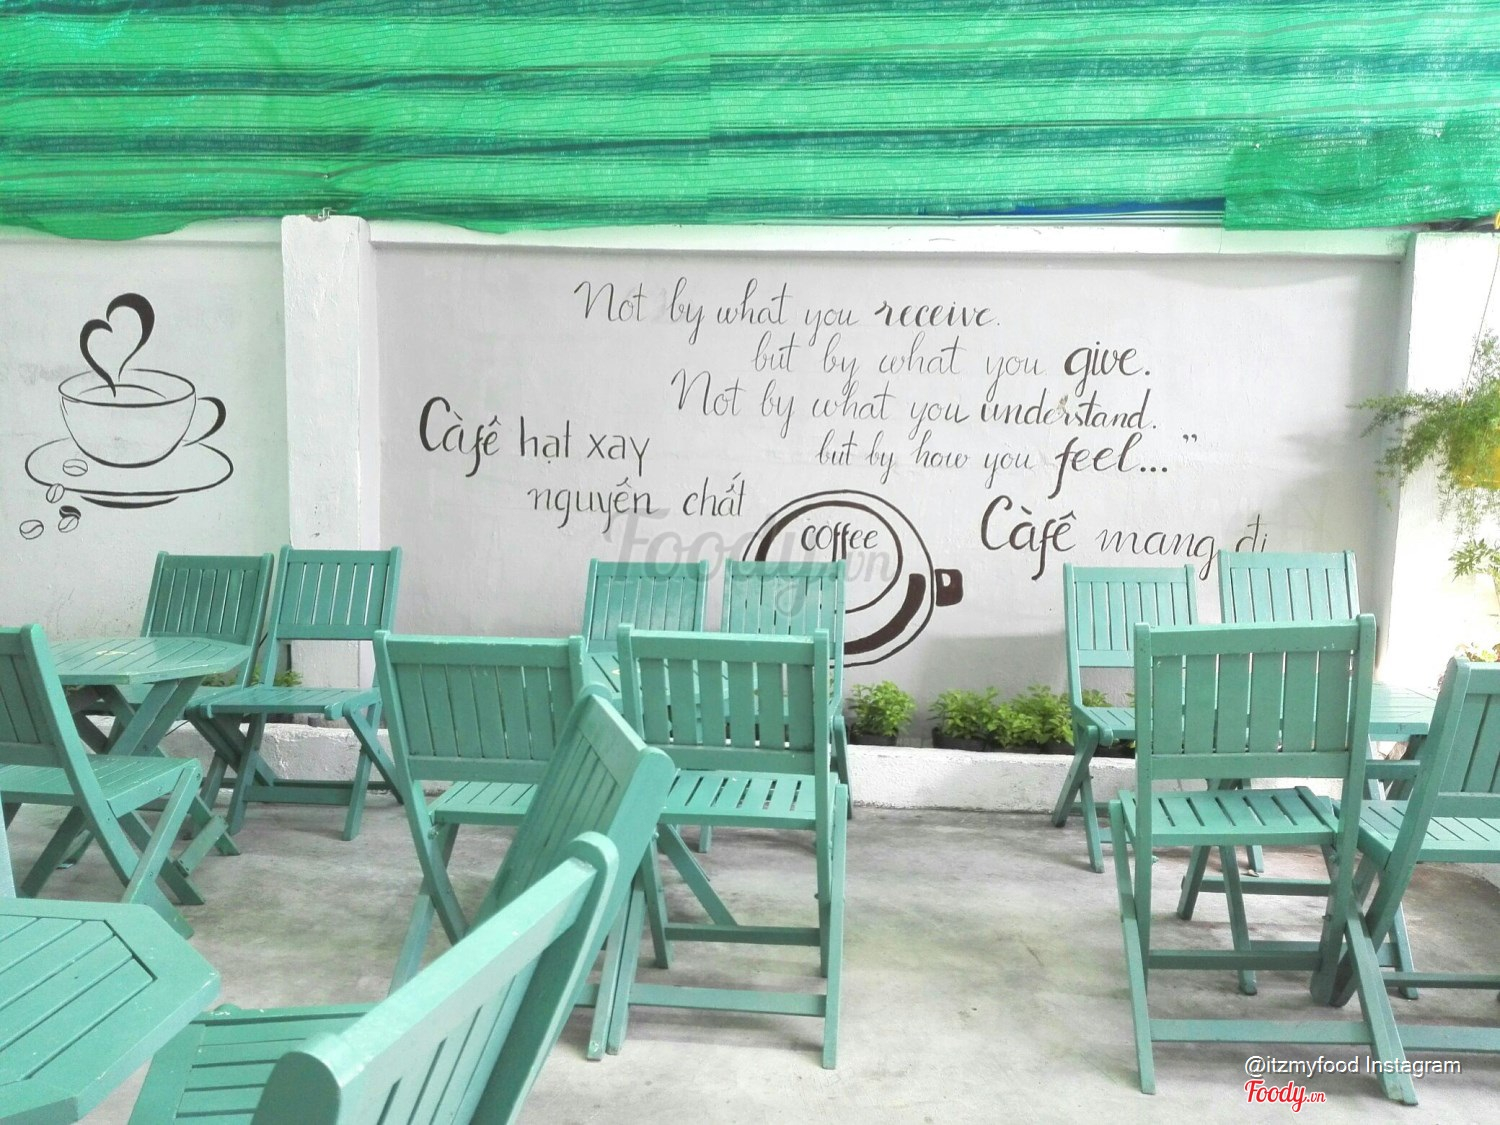 Not by what you receive.
but by what you give.
Not by what you understand.
but by how you feel..."
Càfê hạt xay
nguyên chất
coffee
Càfê mang đi
Foody.vn
@itzmyfood Instagram
Foody.vn